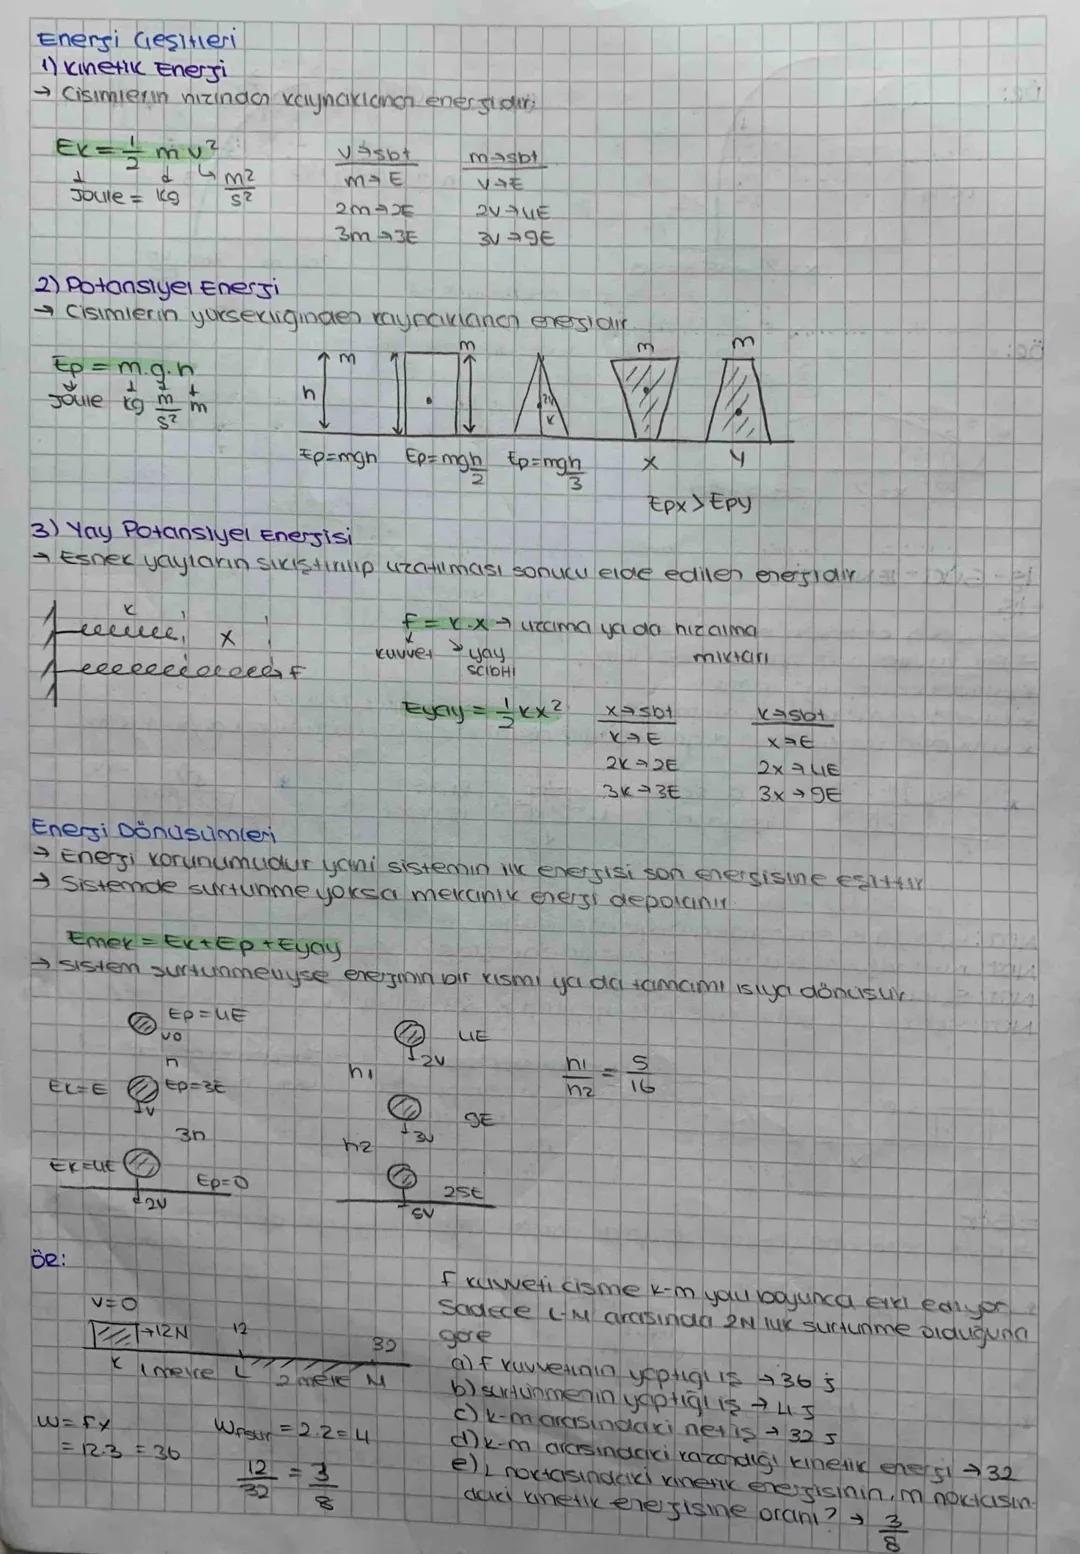 Enerji Çeşitleri
1) Kinetik Enerji
→ Cisimlerin hızından kaynaklanan enerjidir.
Ek = 1/2 m v²
Joule = kg m²/s²
v→sbt m→sbt
m→E v→E
2m→2E 2v→4E
3m→3E 3v→9E
2) Potansiyel Enerji
→ Cisimlerin yüksekliğinden kaynaklanan enerjidir.
Ep = m.g.h
Joule kg m/s² m
m m m m
h
Ep=mgh Ep=mgh/2 Ep=mgh/3 X Y
Epx > Epy
3) Yay Potansiyel Enerjisi
→ Esnek yayların sıkıştırılıp uzatılması sonucu elde edilen enerjidir
k
x
F
F = k.x → uzama ya da kızalma miktarı
kuvvet yay sabiti
Eyay = 1/2 kx²
x→sbt k→sbt
k→E x→E
2k→2E 2x→4E
3k→3E 3x→9E
Enerji Dönüşümleri
→ Enerji korunumudur yani sistemin ilk enerjisi son enerjisine eşittir
→ Sistemde sürtünme yoksa mekanik enerji depolanır
Emek = Ek+Ep+Eyay
→ sistem sürtünmeliyse enerjinin bir kısmı ya da tamamı ısıya dönüşür
Ep=4E
v0
h
Ek=E Ep=3E
v
3h
Ek=4E Ep=0
2v
4E
2v
h1
9E
3v
h2
25E
5v
h1/h2 = 5/16
Ör:
F kuvveti cisme K-M yolu boyunca etki ediyor
Sadece L-M arasında 2N luk sürtünme olduğuna
göre
a) F kuvvetinin yaptığı iş → 36 j
b) sürtünmenin yaptığı iş → 4J
c) K-M arasındaki net iş → 32 J
d) K-M arasındaki kazandığı kinetik enerji → 32
e) L noktasındaki kinetik enerjisinin, M noktasın-
daki kinetik enerjisine oranı? → 3/8
V=0
→12N 12 32
K 1 metre L 2 metre M
W = F.x
= 12.3 = 36
Wfsür = 2.2 = 4
12/32 = 3/8